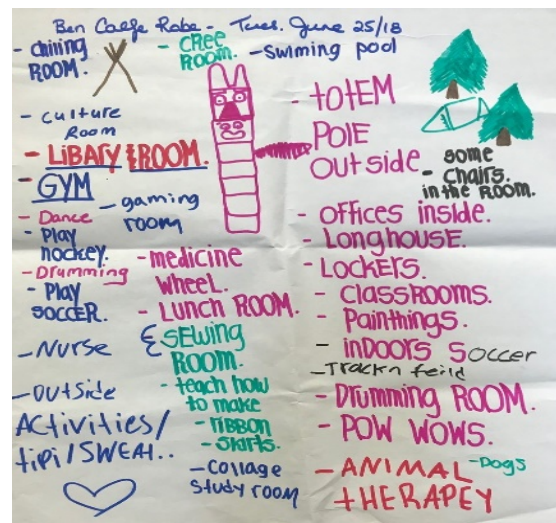 Ben Calfe Robe - Tues. June 25/18
- dining
ROOM.
- CREE
ROOM.
- Swiming pool
- culture
Room
- LiBARY & ROOM.
- GYM
- Dance
- Play
hockey.
- gaming
room
- Drumming
- Play
SOCCER.
- Nurse
- outside
Activities/
tipi/SWEAT..
- medicine
wheel.
- LUNCH ROOM.
& SEWING
ROOM.
- teach how
to make
- ribbon
- skirts.
- collage
study room
- totEM
POlE
outside
some
- chairs.
in the ROOM.
- Offices inside.
- Longhouse.
- LOCKERS.
- Classrooms.
- Painthings.
- inDOORS Soccer
- Trackn feild
- Drumming ROOM.
- POW WOWS.
- ANIMAL
tHERAPEY
- Dogs